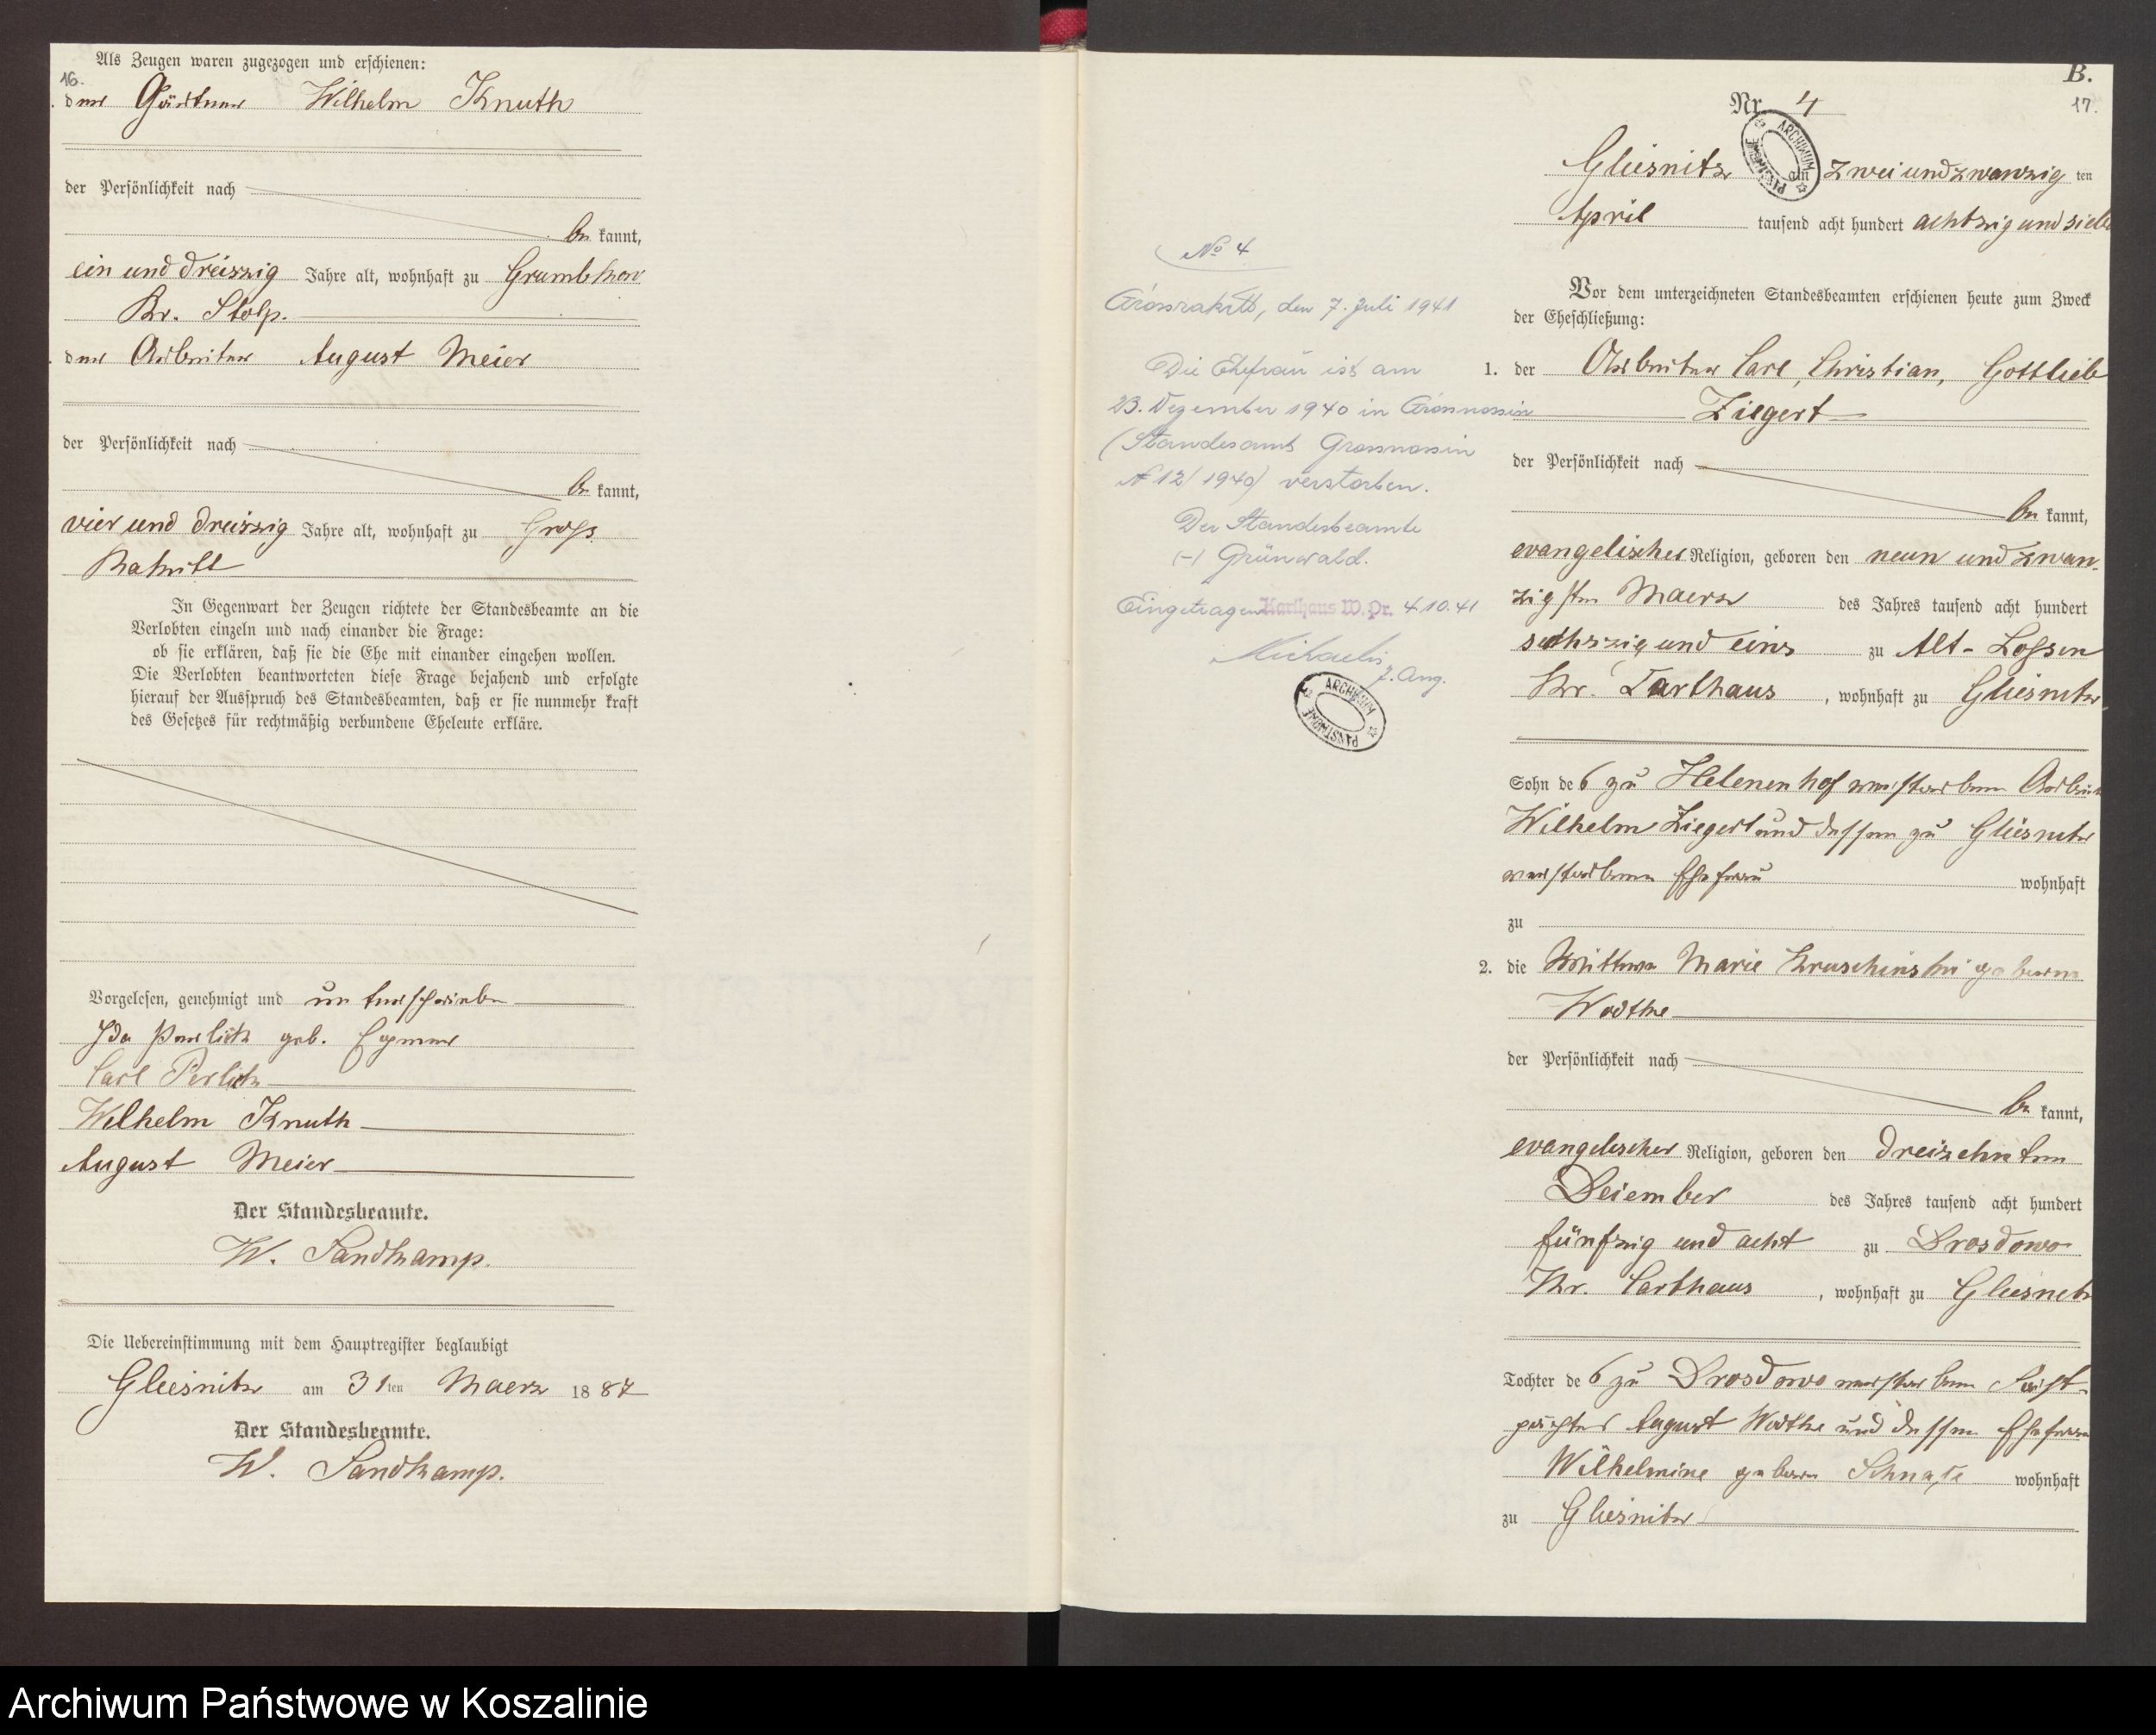 Als Zeugen waren zugezogen und erschienen:
16.
der Gärtner Wilhelm Knuth
der Persönlichkeit nach
be kannt,
ein und dreiszig Jahre alt, wohnhaft zu Grumbkow
Kr. Stolp.
der Arbeiter August Meier
der Persönlichkeit nach
be kannt,
vier und dreiszig Jahre alt, wohnhaft zu Groß
Rakitt
In Gegenwart der Zeugen richtete der Standesbeamte an die
Verlobten einzeln und nach einander die Frage:
ob sie erklären, daß sie die Ehe mit einander eingehen wollen.
Die Verlobten beantworteten diese Frage bejahend und erfolgte
hierauf der Ausspruch des Standesbeamten, daß er sie nunmehr kraft
des Gesetzes für rechtmäßig verbundene Eheleute erkläre.
Vorgelesen, genehmigt und unterschrieben
Ida Perlick geb.
Carl Perlick
Wilhelm Knuth
August Meier
Der Standesbeamte.
W. Sandkamp.
Die Uebereinstimmung mit dem Hauptregister beglaubigt
Gliesnitz am 31ten Maerz 1887
Der Standesbeamte.
W. Sandkamp.
No 4
Grossrakitt, den 7. Juli 1941
Die Ehefrau ist am
23. Dezember 1940 in Grossnossin
(Standesamt Grossnossin
N 12/1940) verstorben.
Der Standesbeamte
(-) Grünwald.
Eingetragen Karthaus W. Pr. 4.10.41
Michaelis
z. Ang.
ARCHIWUM PAŃSTWOWE
B.
17.
Nr. 4
ARCHIWUM PAŃSTWOWE
Gliesnitz am zwei und zwanzig ten
April tausend acht hundert achtzig und sieb
Vor dem unterzeichneten Standesbeamten erschienen heute zum Zweck
der Eheschließung:
1. der Arbeiter Carl, Christian, Gottlieb
Ziegert
der Persönlichkeit nach
be kannt,
evangelischer Religion, geboren den neun und zwan-
zigsten Maerz des Jahres tausend acht hundert
sechszig und eins zu Alt-Lossen
Kr. Carthaus, wohnhaft zu Gliesnitz,
Sohn des zu Helenenhof verstorbenen Arbeit
Wilhelm Ziegert und dessen zu Gliesnitz
verstorbenen Ehefrau wohnhaft
zu
2. die Wittwe Marie Kruschinski geborene
Wodtke
der Persönlichkeit nach
be kannt,
evangelischer Religion, geboren den dreizehnten
Dezember des Jahres tausend acht hundert
fünfzig und acht zu Drosdowo
Kr. Carthaus, wohnhaft zu Gliesnitz
Tochter des zu Drosdowo verstorbenen
pächters August Wodtke und dessen Ehefrau
Wilhelmine geboren Schnase wohnhaft
zu Gliesnitz
Archiwum Państwowe w Koszalinie